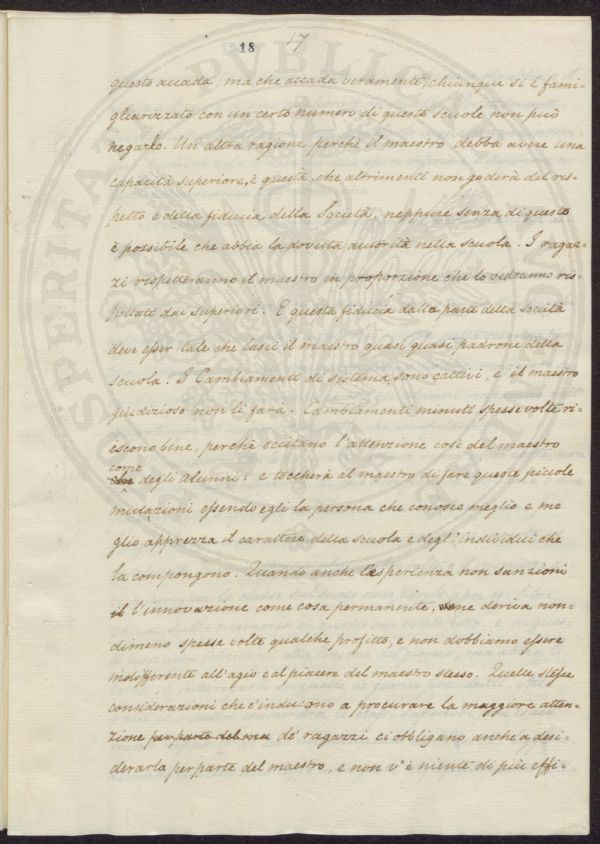 18 17
questo accada, ma che accada veramente, chiunque si è fami-
gliarizzato con un certo numero di queste scuole non può
negarlo. Un' altra ragione perchè il maestro debba avere una
capacità superiore, è questa, che altrimenti non goderà del ris-
petto e della fiducia della Società, neppure senza di questo
è possibile che abbia la dovuta autorità nella scuola. I ragaz-
zi rispetteranno il maestro in proporzione che lo vedranno ris-
pettato dai superiori. E questa fiducia dalla parte della società
deve esser tale che lasci il maestro quasi quasi padrone della
scuola. I Cambiamenti di sistema sono cattivi, e il maestro
giudizioso non li farà. Cambiamenti minuti spesse volte ri-
escono bene, perchè eccitano l'attenzione così del maestro
come
degli alunni: e toccherà al maestro di fare queste piccole
mutazioni essendo egli la persona che conosce meglio e me
glio apprezza il carattere della scuola e degl' individui che
la compongono. Quando anche l'esperienza non sanzioni
il l'innovazione come cosa permanente, ne deriva non-
dimeno spesse volte qualche profitto, e non dobbiamo essere
indifferente all'agio e al piacere del maestro stesso. Quelle stesse
considerazioni che c'inducono a procurare la maggiore atten-
zione per parte del ma de' ragazzi ci obbligano anche a desi-
derarla per parte del maestro, e non v'è niente di più effi-
PROSPERITATI PUBLICAE